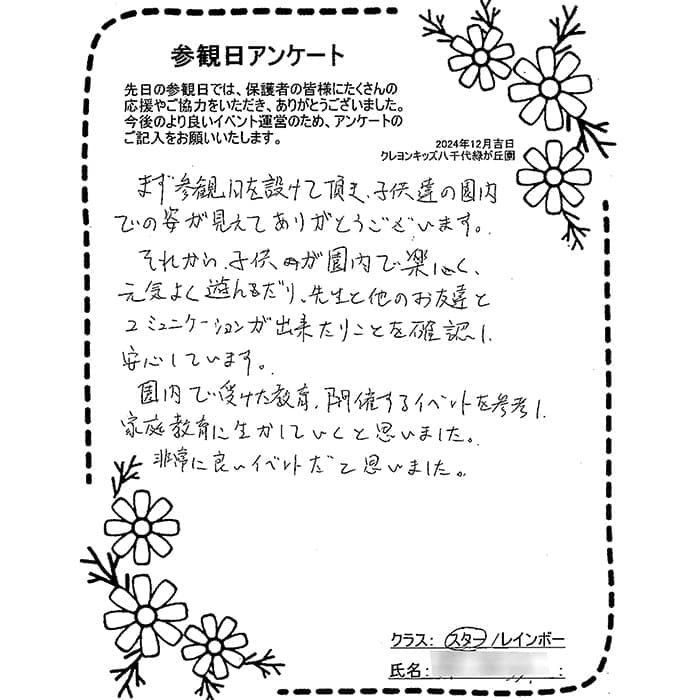 参観日アンケート
先日の参観日では、保護者の皆様にたくさんの
応援やご協力をいただき、ありがとうございました。
今後のより良いイベント運営のため、アンケートの
ご記入をお願いいたします。
2024年12月吉日
クレヨンキッズ八千代緑が丘園
まず参観日を設けて頂き、子供達の園内
での姿が見えてありがとうございます。
それから、子供が園内で楽しく、
元気よく遊んだり、先生と他のお友達と
コミュニケーションが出来たりことを確認し、
安心しています。
園内で受けた教育、開催するイベントを参考し、
家庭教育に生かしていくと思いました。
非常に良いイベントだと思いました。
クラス: スター/レインボー
氏名: